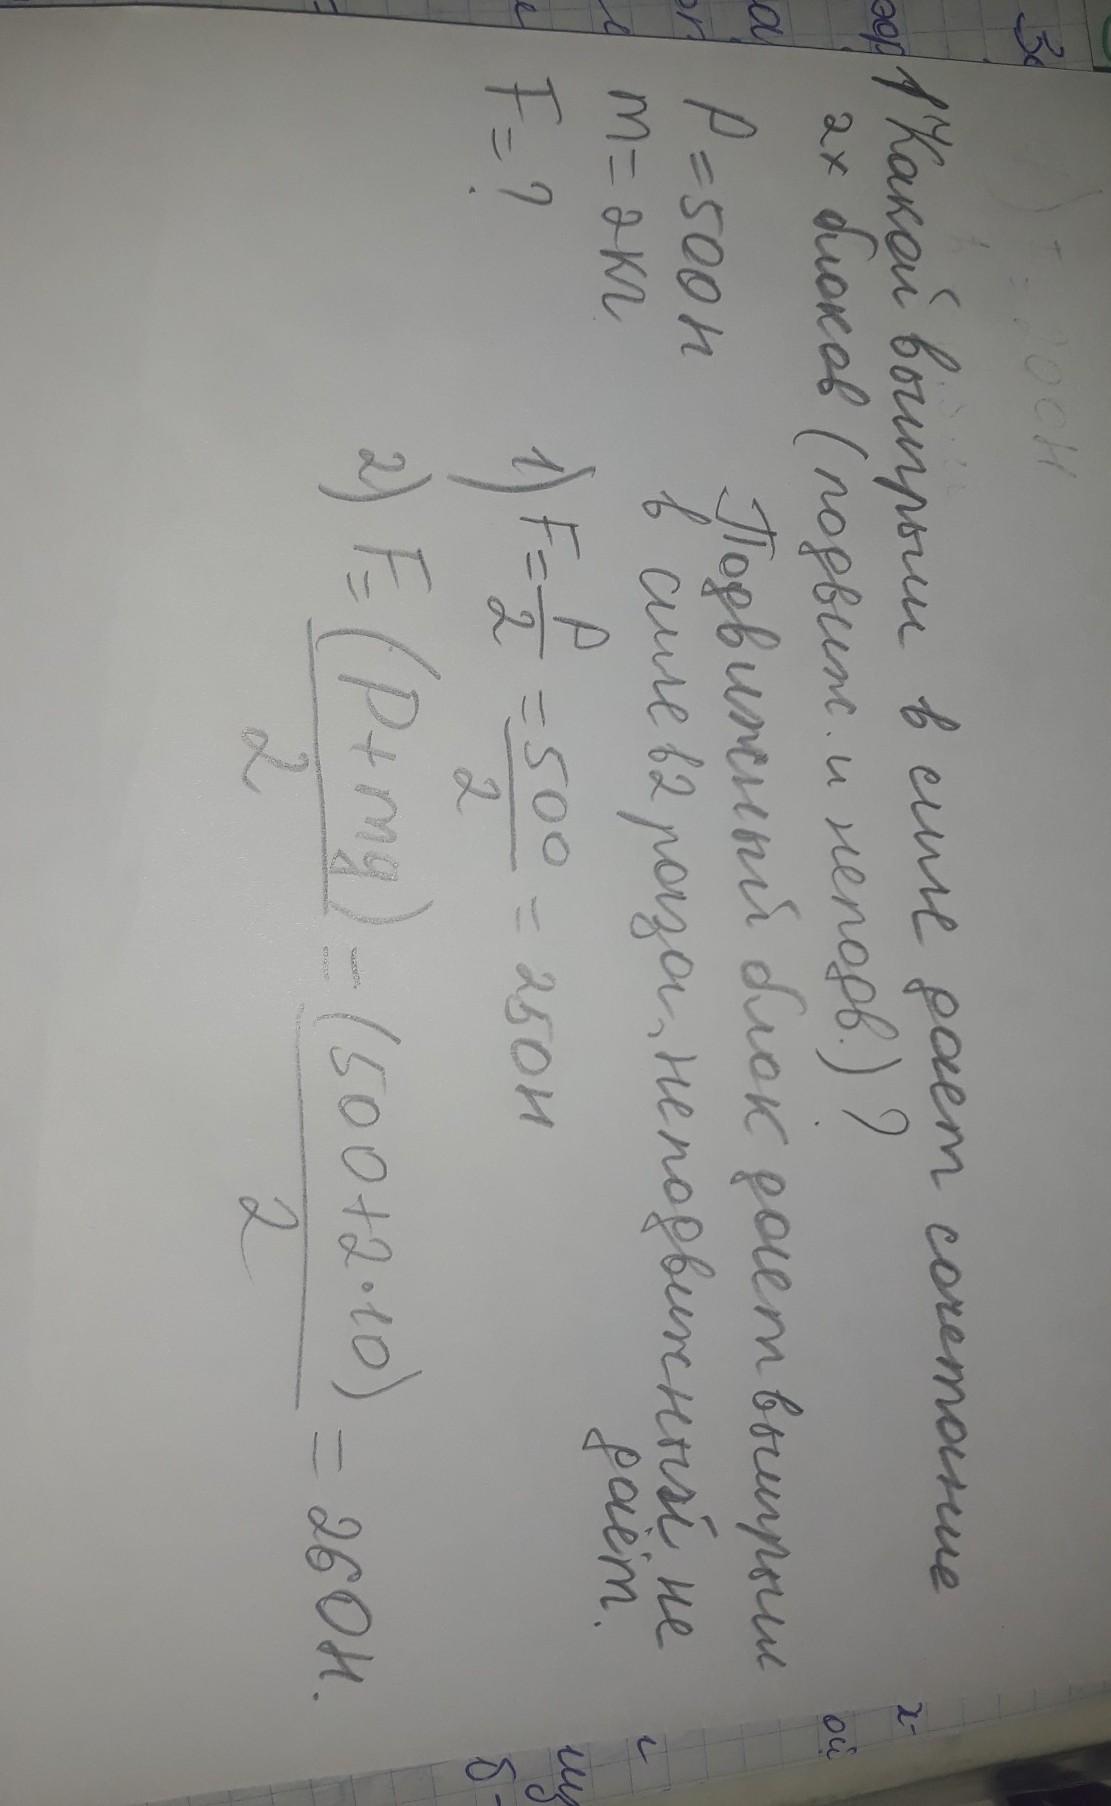 1) Какой выигрыш в силе дает сочетание
2х блоков (подвиж. и неподв.)?
P = 500 Н
m = 2 кг
F = ?
Подвижный блок дает выигрыш
в силе в 2 раза, неподвижный не
даёт.
1) F = P/2 = 500/2 = 250 Н
2) F = (P + mg)/2 = (500 + 2 · 10)/2 = 260 Н.